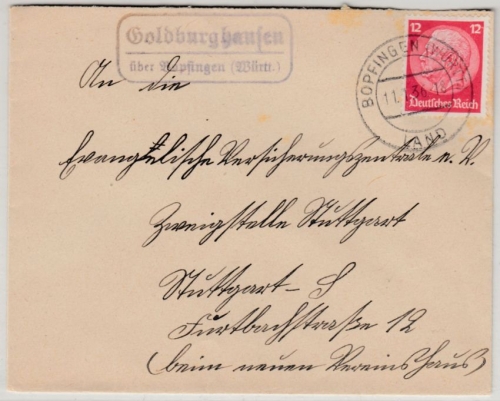 Goldburghausen
über Bopfingen (Württ.)
12 12
Deutsches Reich
BOPFINGEN (WÜRTT)
LAND
An die
Evangelische Versicherungszentrale e. V.
Zweigstelle Stuttgart
Stuttgart - S
Furtbachstraße 12
(beim neuen Vereinshaus)